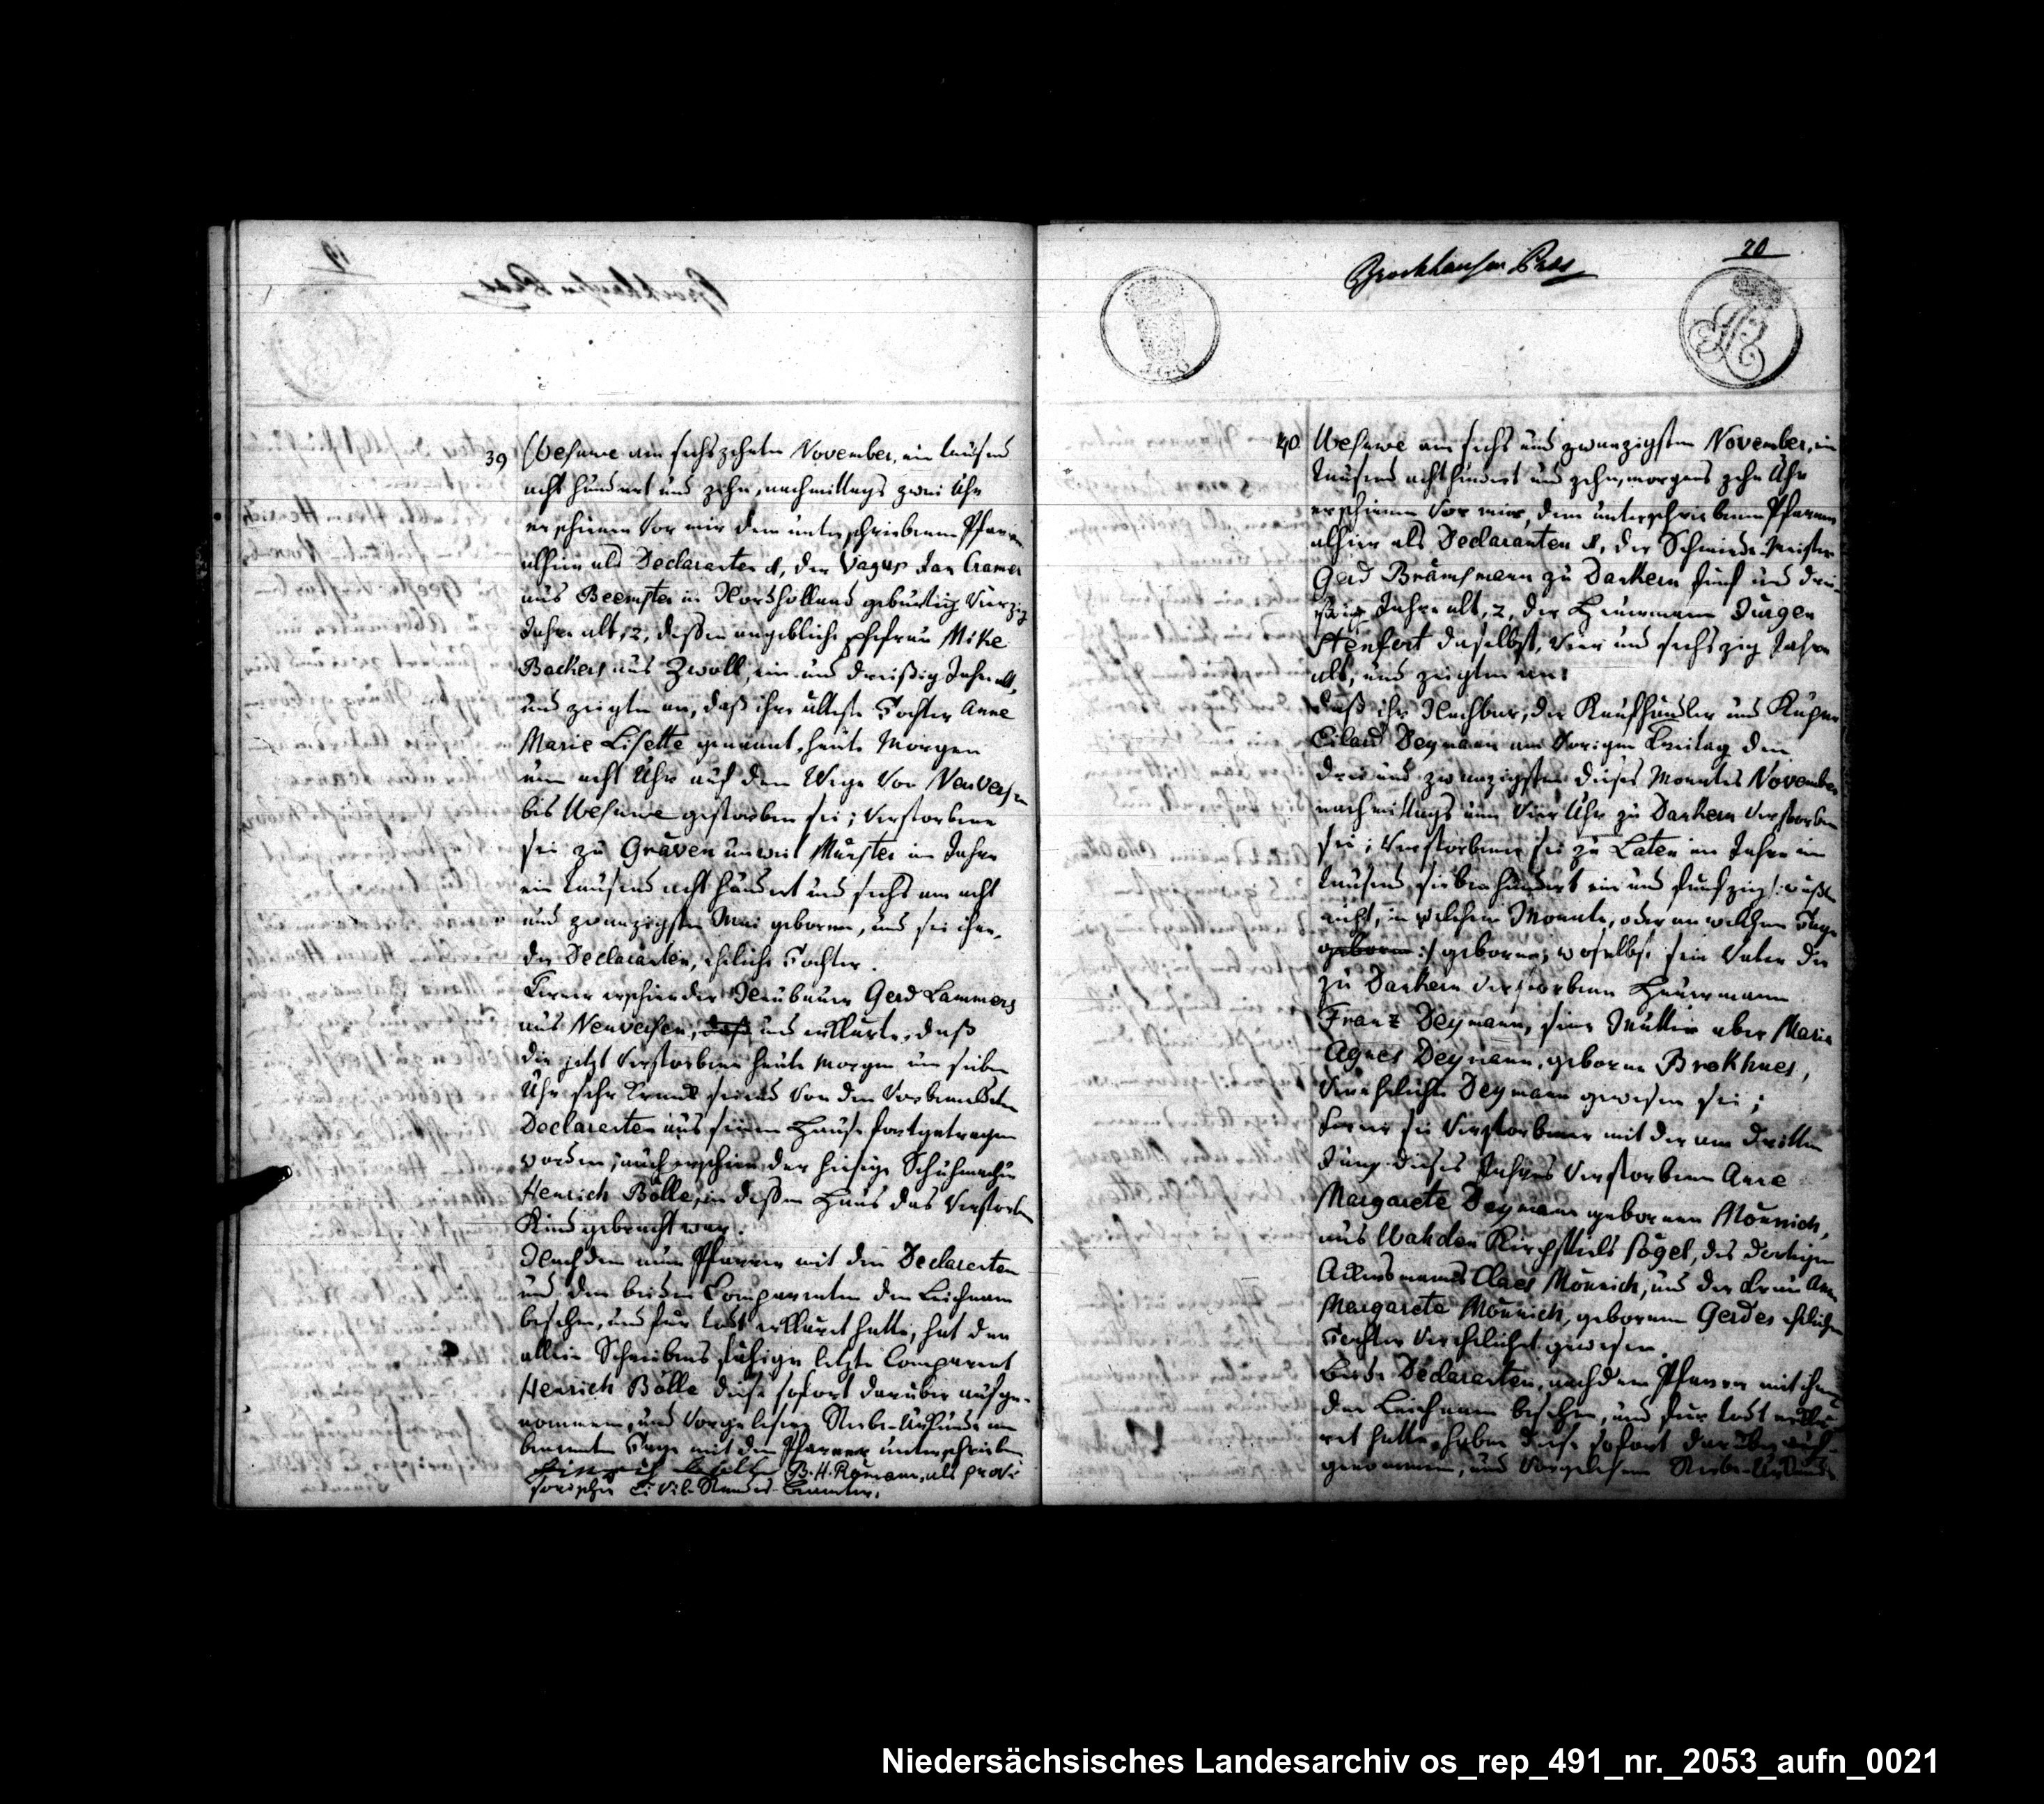 39 Wesuwe am sechszehnten November, ein tausend
acht hundert und zehn, nachmittags zwei Uhr
erschienen vor mir dem unterschriebenen Pfarrer
alhier als Declaranten 1, der Vagus Jan Cramer
aus Beemster in Nordholland gebürtig vierzig
Jahre alt, 2, dessen angebliche Ehefrau Mike
Backers aus Zwoll, ein und dreißig Jahr alt,
und zeigten an, daß ihre älteste Tochter Anne
Marie Lisette genannt, heute Morgen
um acht Uhr auf dem Wege von Neuversen
bis Wesuwe gestorben sei; Verstorbene
sei zu Gräven unweit Münster im Jahre
ein tausend acht hundert und sechs am acht
und zwanzigsten Mai geboren, und sei ihre,
der Declaranten, eheliche Tochter.
Ferner erschien der Neubauer Gerd Lammers
aus Neuversen, daß und erklärte, daß
die jetzt Verstorbene heute Morgen um sieben
Uhr sehr krank seiend von den vorbenannten
Declaranten aus seinem Hause fortgetragen
worden; auch erschien der hiesige Schuhmacher
Henrich Bölle, in dessen Haus das verstorbene
Kind gebracht war.
Nachdem nun Pfarrer mit den Declaranten
und den beiden Comparenten den Leichnam
besehen, und für todt erklärt hatte, hat der
allein Schreibens fähige letzte Comparent
Henrich Bölle diese sofort darüber aufge-
nommene, und vorgelesene Sterbe-Urkunde am
benannten Tage mit dem Pfarrer unterschrieben
B. H. Romann, als provi
sorischer Civil-Standes-Beamter.
Brockhausen Präs
20
40. Wesuwe am sechs und zwanzigsten November, ein
tausend achthundert und zehn, morgens zehn Uhr
erschienen vor mir, dem unterschriebenen Pfarrer
alhier als Declaranten 1, der Schmiede-Meister
Gerd Brämsmann zu Dankern fünf und drei-
ßig Jahre alt, 2, der Heuermann Jürgen
Stenfort daselbst, vier und sechszig Jahre
alt, und zeigten an:
daß ihr Nachbar, der Kaufhändler und Küper
Eilard Deymann am vorigen Freitag den
drei und zwanzigsten dieses Monates November
nachmittags um vier Uhr zu Dankern verstorben
sei; Verstorbener sei zu Laten im Jahre ein
tausend siebenhundert ein und funfzig /: wüßten
nicht, in welchem Monate, oder an welchem Tage
geboren :/ geboren, woselbst sein Vater der
zu Dankern verstorbene Heuermann
Franz Deymann, seine Mutter aber Marie
Agnes Deymann, geborne Brokhues,
verehelichte Deymann gewesen sei;
ferner sei Verstorbener mit der am dritten
Juny dieses Jahres verstorbenen Anne
Margarete Deymann gebornen Mönnich,
aus Wahden Kirchspiels Sögel, des dortigen
Ackersmanns Claes Mönnich, und der Frau Anne
Margarete Mönnich, gebornen Gerdes ehelichen
Tochter verehelicht gewesen.
Beide Declaranten, nachdem Pfarrer mit ihnen
den Leichnam besehen, und für todt erklä-
ret hatte, haben diese sofort darüber auf-
genommene, und vorgelesene Sterbe-Urkunde
Niedersächsisches Landesarchiv os_rep_491_nr._2053_aufn_0021